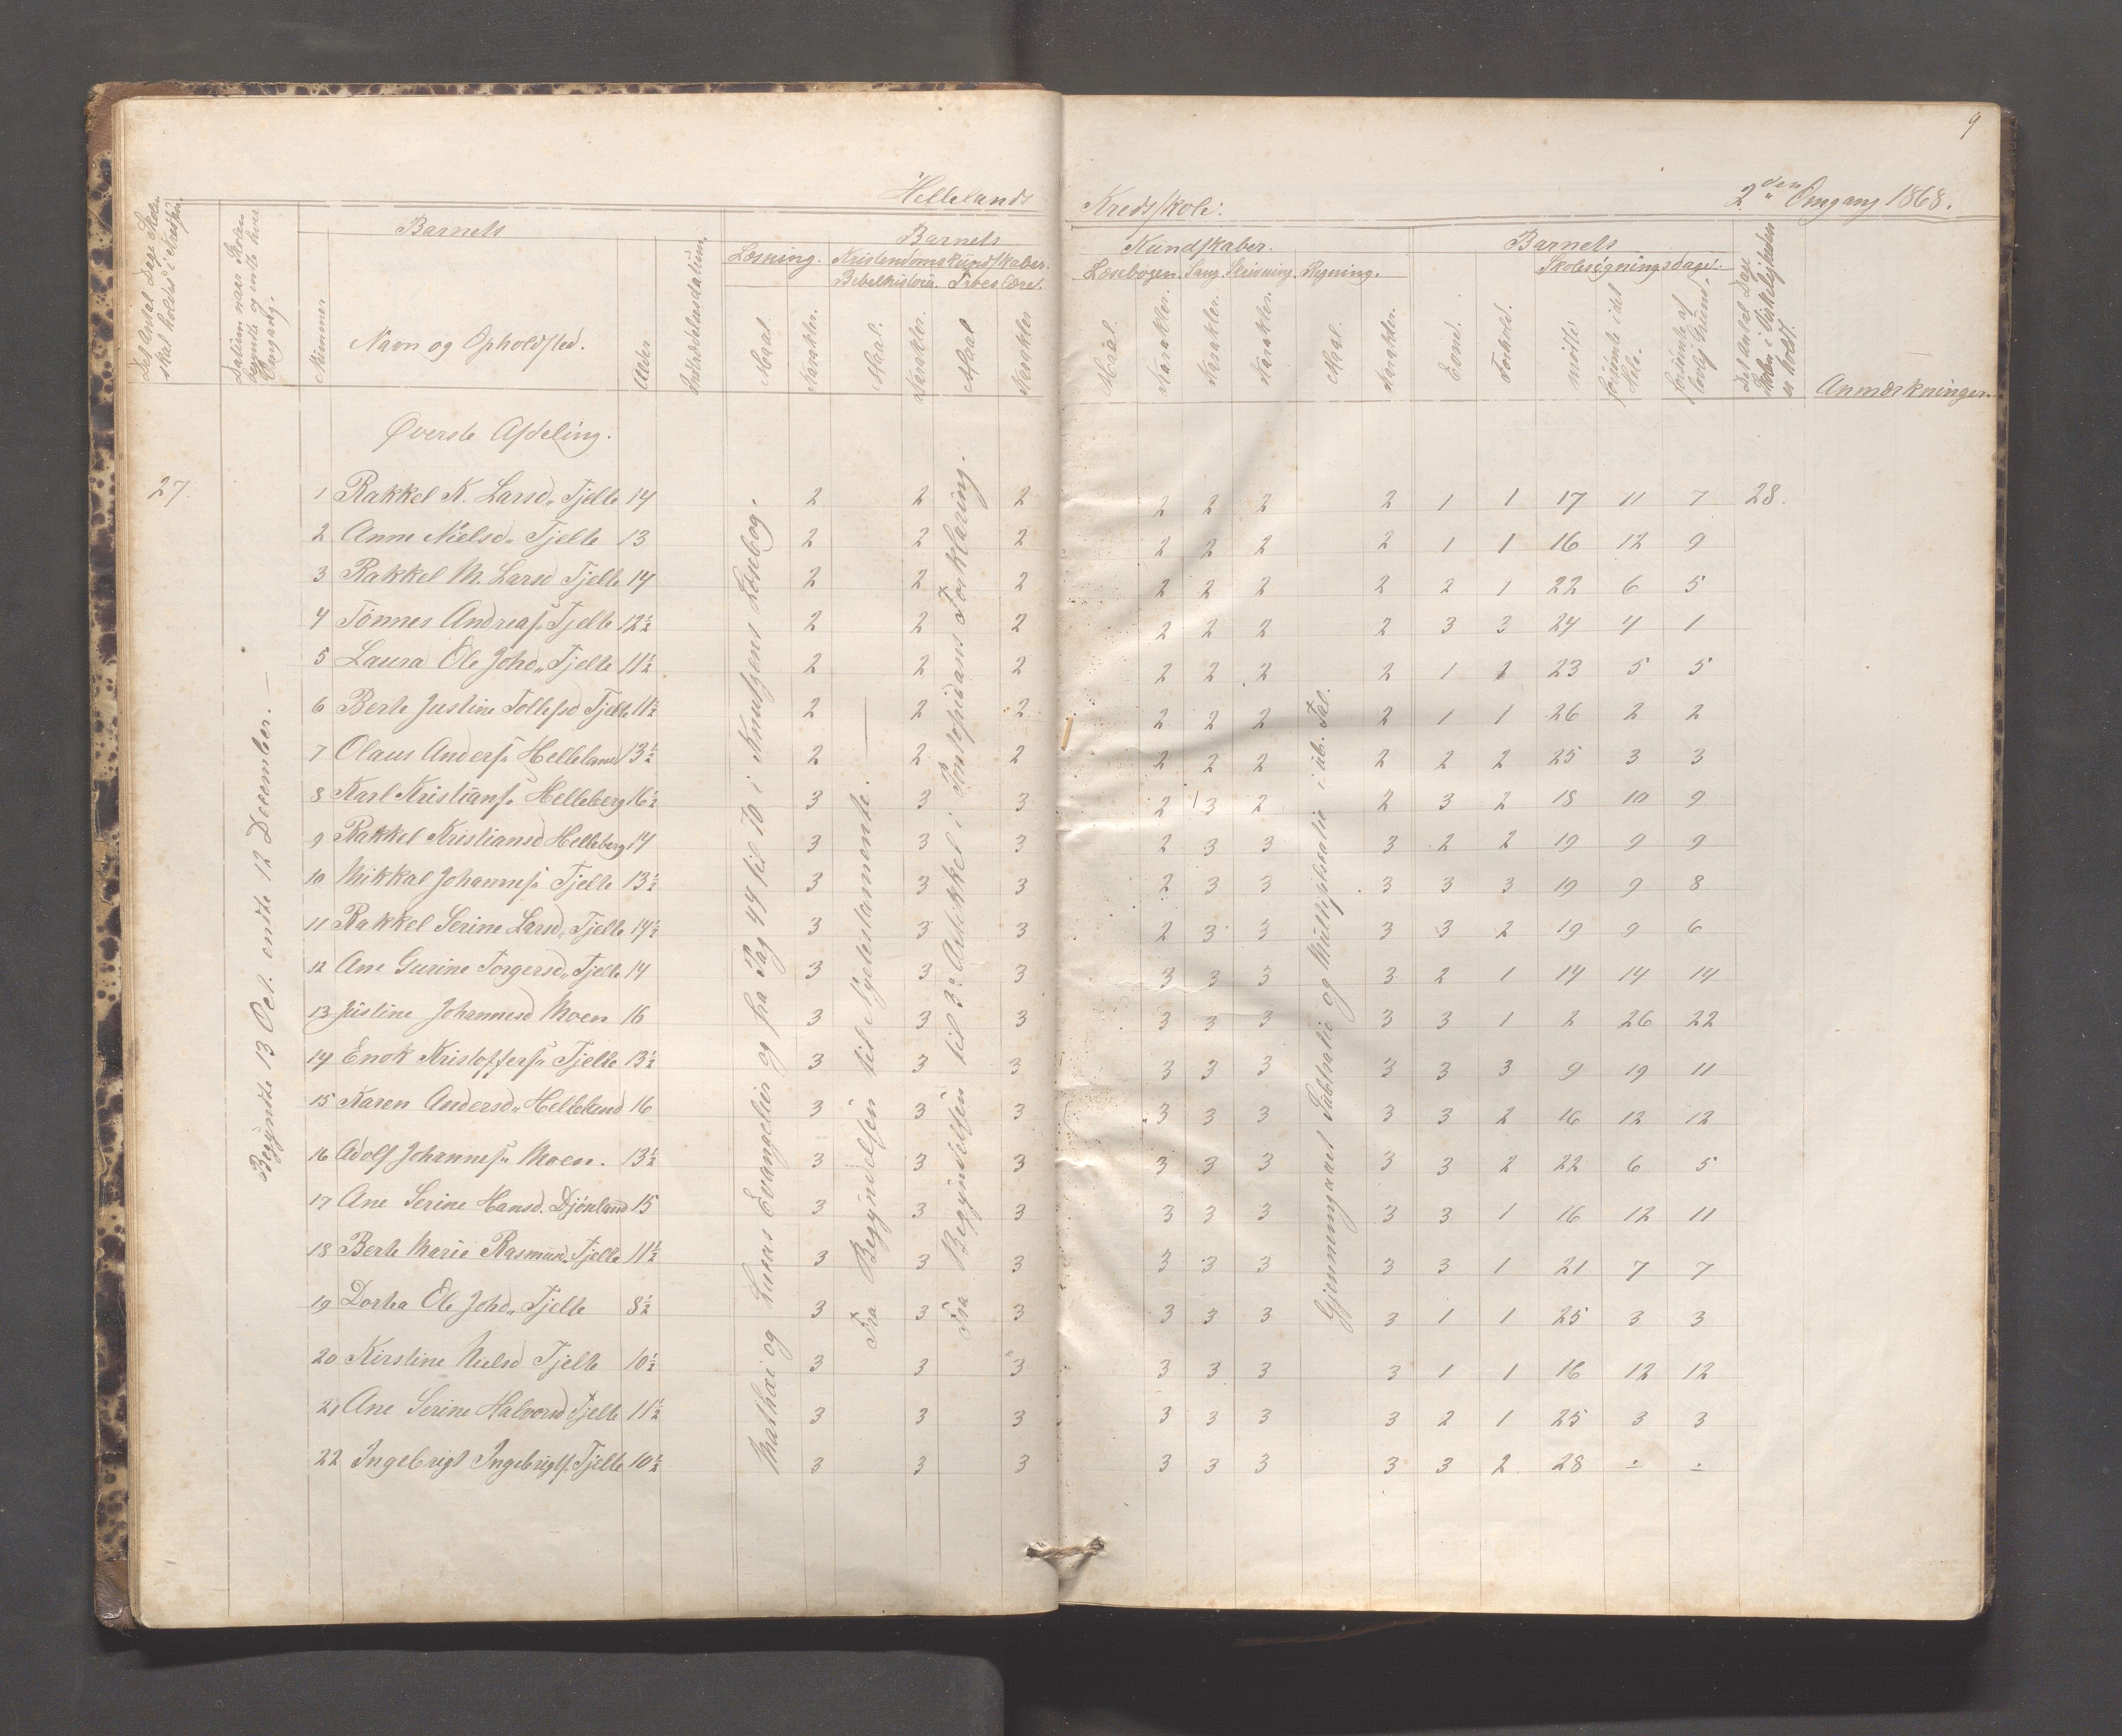 9
Hellelands Kredsskole. 2den Omgang 1868.
Det Antal Dage Skolen skal holdes i Kredsen.
Datum naar Skolen begyndte og endte hver Omgang.
Barnets
Nummer
Navn og Opholdsted.
Alder
Indtrædelsesdatum.
Barnets Kundskaber.
Læsning. Kristendomskundskaber. Læsebogen. Sang. Skrivning. Regning.
Bibelhistorie. Troeslære.
Maal. Karakter. Maal. Karakter. Maal Karakter
Maal. Karakter. Karakter. Karakter. Maal. Karakter.
Barnets
Evne. Forhold.
Skolesøgningsdage.
mødte forsømte i det Hele. forsømte af lovlig Grund.
Det Antal Dage Skolen i Virkeligheden er holdt.
Anmærkninger.
Øverste Afdeling.
27.
Begyndte 13 Oct. endte 12 December.
Mathæi og Lukas Evangelier og fra Pag 44 til 70 i Knutzens Læsebog.
Fra Begyndelsen til Nytestamente.
Fra Begyndelsen til 3die Artikkel i Pontoppidans Forklaring.
Gjennemgaaet Subtratie og Multiplikatie i ub. Tal.
1 Rakkel K. Larsd. Tjelte 14 2 2 2 2 2 2 2 1 1 17 11 7 28.
2 Anne Nielsd. Tjelte 13 2 2 2 2 2 2 2 1 1 16 12 9
3 Rakkel M. Larsd Tjelte 14 2 2 2 2 2 2 2 2 1 22 6 5
4 Tønnes Andreas. Tjelte 12½ 2 2 2 2 2 2 2 3 3 24 4 1
5 Laura Ole Johd. Tjelte 11½ 2 2 2 2 2 2 2 1 1 23 5 5
6 Berte Justine Tollefsd Tjelte 11½ 2 2 2 2 2 2 2 1 1 26 2 2
7 Olaus Anders. Helleland 13½ 2 2 2 2 2 2 2 2 2 25 3 3
8 Karl Kristians. Helleberg 16½ 3 3 3 2 3 2 2 3 2 18 10 9
9 Rakkel Kristiansd Helleberg 14 3 3 3 2 3 3 3 2 2 19 9 9
10 Mikkal Johannes. Tjelte 13½ 3 3 3 2 3 3 3 3 3 19 9 8
11 Rakkel Serine Larsd. Tjelte 14½ 3 3 3 2 3 3 3 3 2 19 9 6
12 Ane Gurine Torgersd. Tjelte 14 3 3 3 3 3 3 3 2 1 14 14 14
13 Justine Johannesd Moen 16 3 3 3 3 3 3 3 3 1 2 26 22
14 Enok Kristoffers. Tjelte 13½ 3 3 3 3 3 3 3 3 3 9 19 11
15 Karen Andersd. Helleland 16 3 3 3 3 3 3 3 3 2 16 12 12
16 Adolf Johannes. Moen. 13½ 3 3 3 3 3 3 3 3 2 22 6 5
17 Ane Serine Hansd. Djønland 15 3 3 3 3 3 3 3 3 1 16 12 11
18 Berte Marie Rasmusd. Tjelte 11½ 3 3 3 3 3 3 3 3 1 21 7 7
19 Dortea Ole Johd. Tjelte 8½ 3 3 3 3 3 3 3 1 1 25 3 3
20 Kirstine Nielsd Tjelte 10½ 3 3 3 3 3 3 3 1 1 16 12 12
21 Ane Serine Halvorsd Tjelte 11½ 3 3 3 3 3 3 3 2 1 25 3 3
22 Ingebrigt Ingebrigts. Tjelte 10½ 3 3 3 3 3 3 3 3 2 28 ÷ ÷